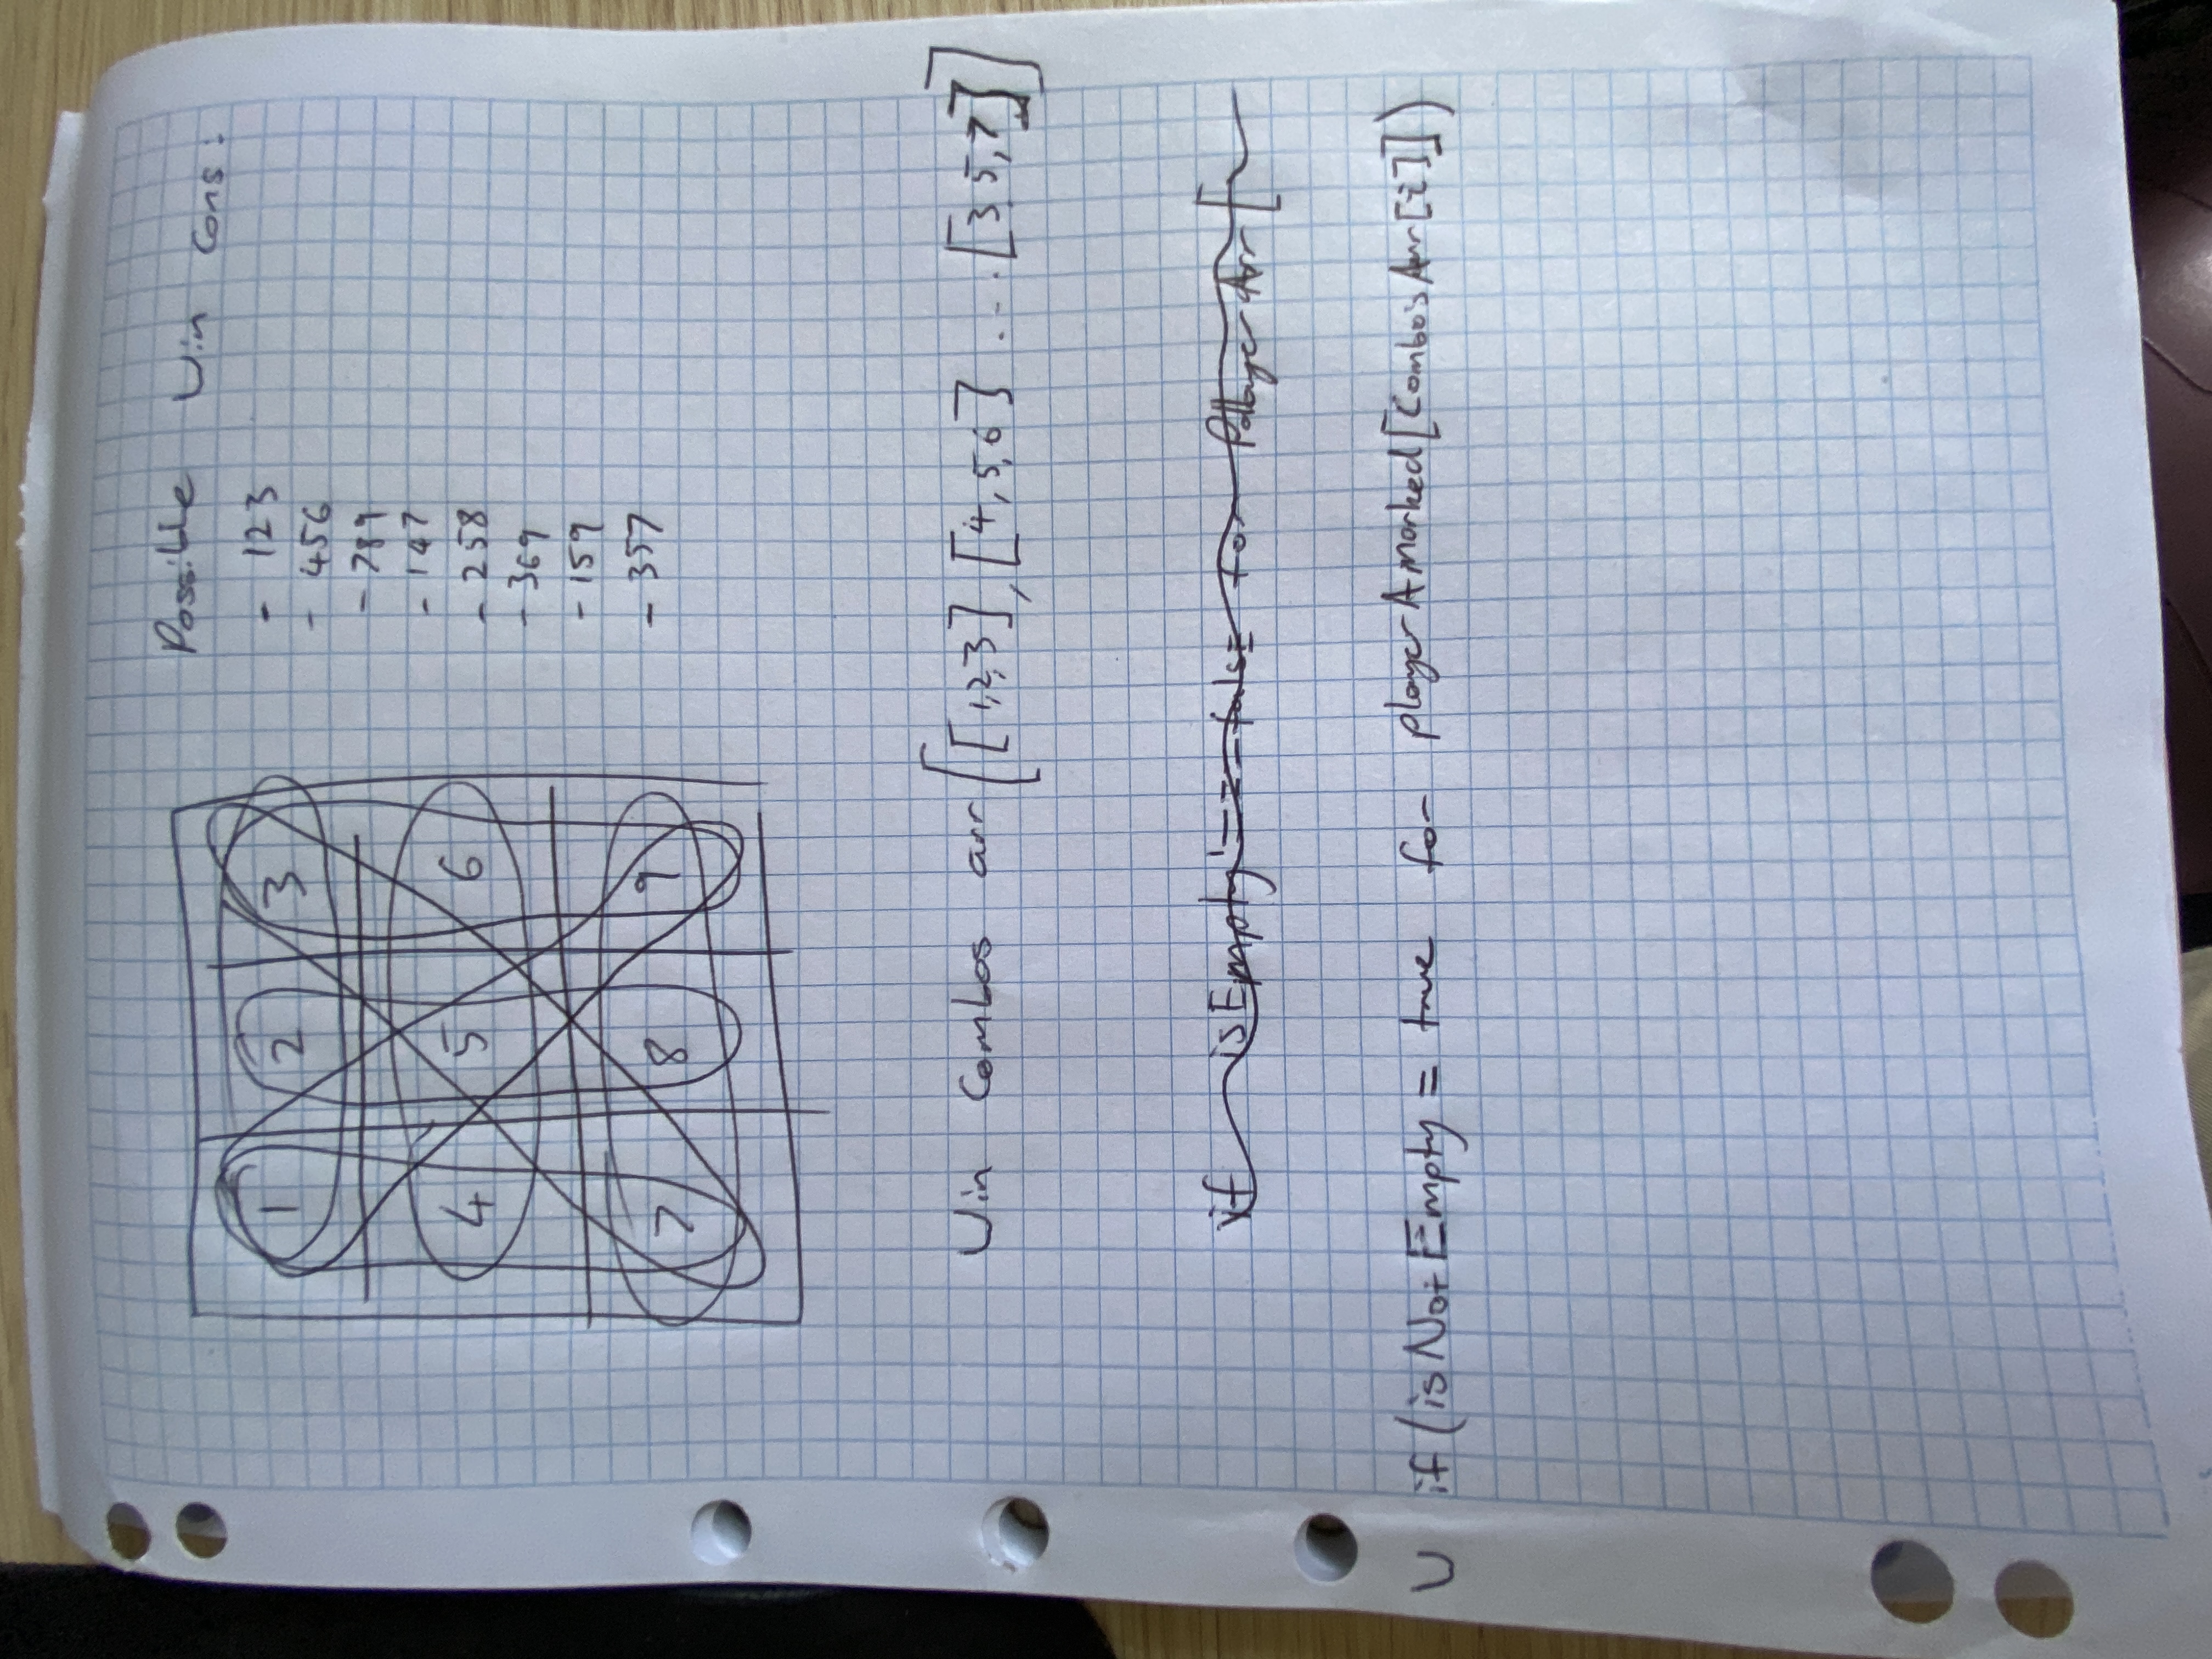 1 2 3
4 5 6
7 8 9
Possible Win Cons:
- 123
- 456
- 789
- 147
- 258
- 369
- 159
- 357
Win Combos arr[[1,2,3],[4,5,6]...[3,5,7]]
if isEmpty === false for Player Arr [
if (isNotEmpty = true for playerAmarked[CombosArr[i]])